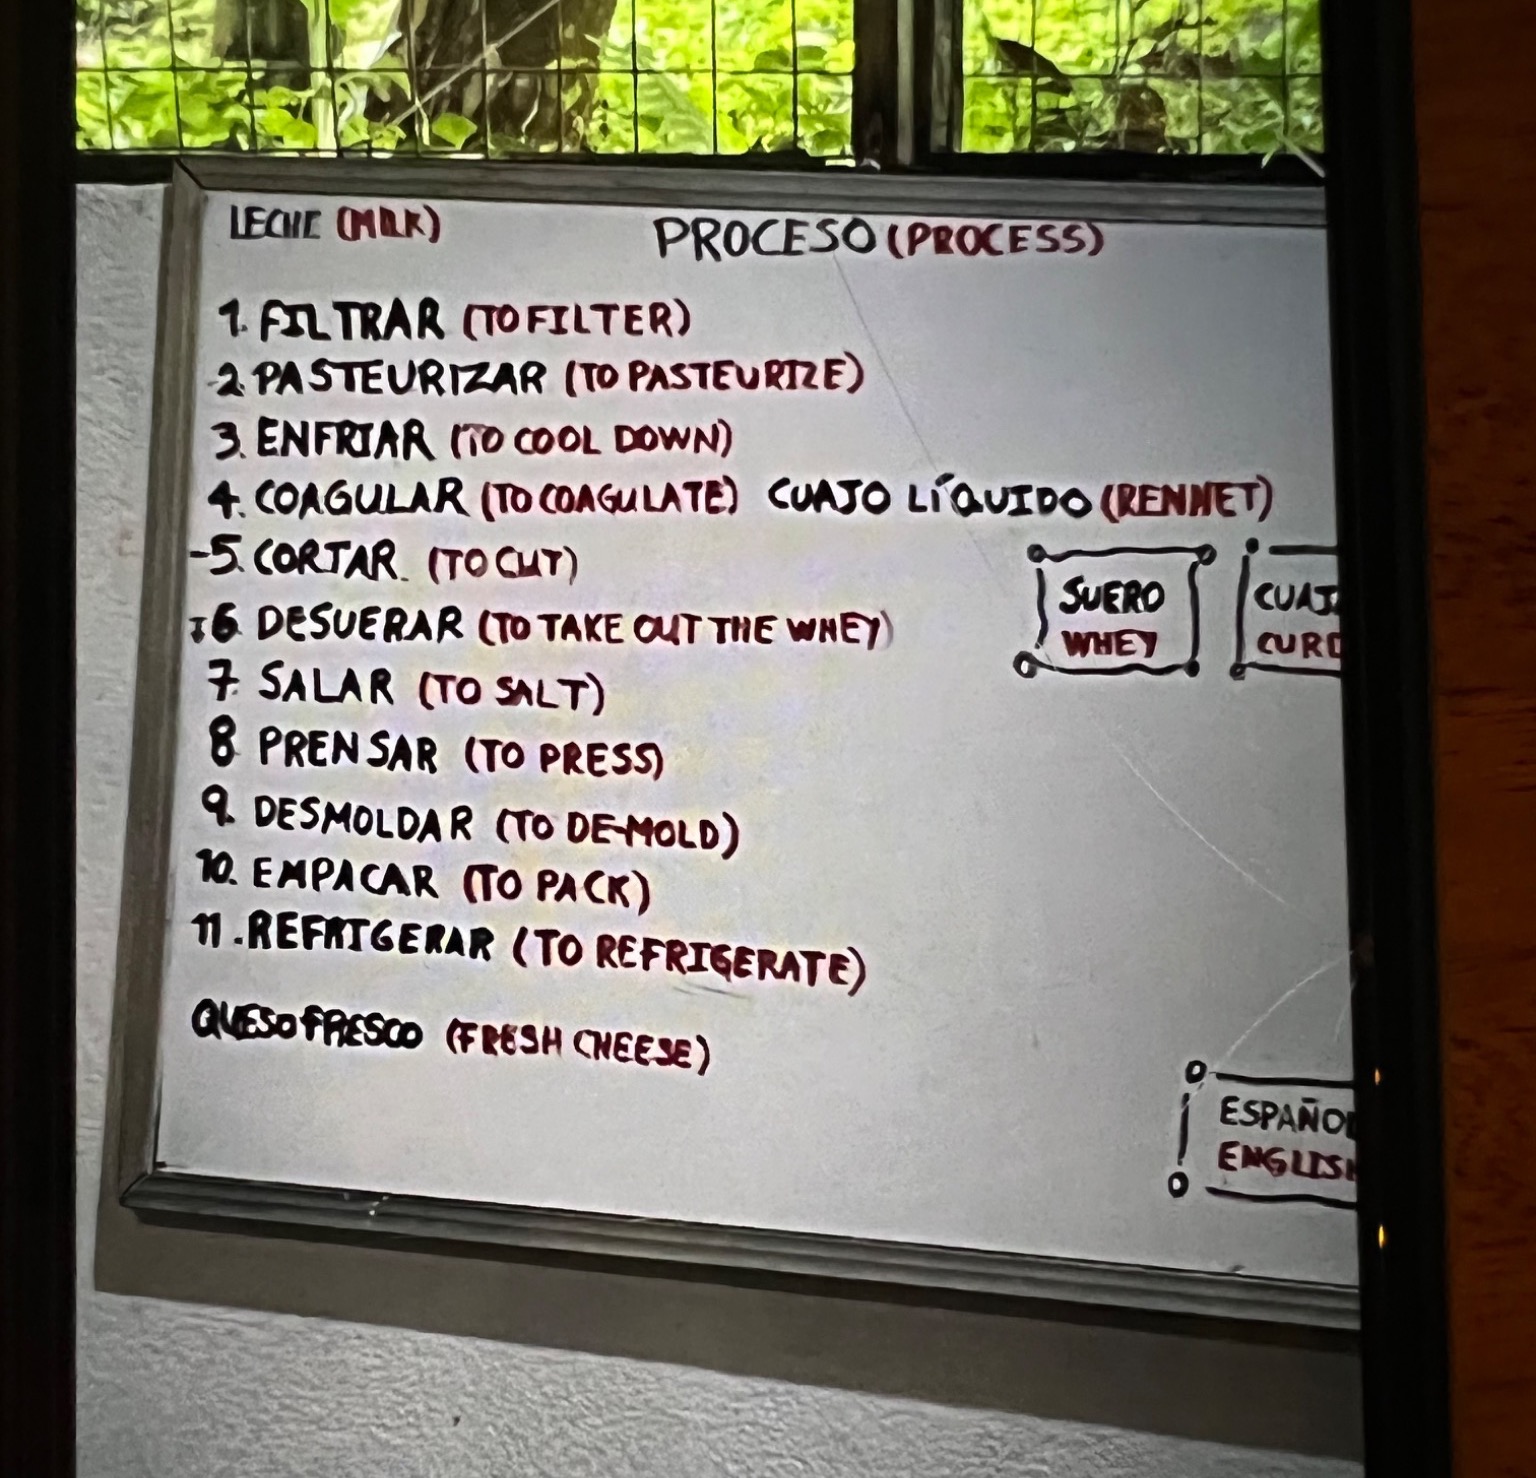 LECHE (MILK)
PROCESO (PROCESS)
1. FILTRAR (TO FILTER)
2. PASTEURIZAR (TO PASTEURIZE)
3. ENFRIAR (TO COOL DOWN)
4. COAGULAR (TO COAGULATE) CUAJO LÍQUIDO (RENNET)
-5. CORTAR. (TO CUT)
6 DESUERAR (TO TAKE OUT THE WHEY)
7. SALAR (TO SALT)
8 PRENSAR (TO PRESS)
9. DESMOLDAR (TO DE-MOLD)
10. EMPACAR (TO PACK)
11. REFRIGERAR (TO REFRIGERATE)
QUESO FRESCO (FRESH CHEESE)
SUERO
WHEY
CUAJ
CURD
ESPAÑOL
ENGLISH